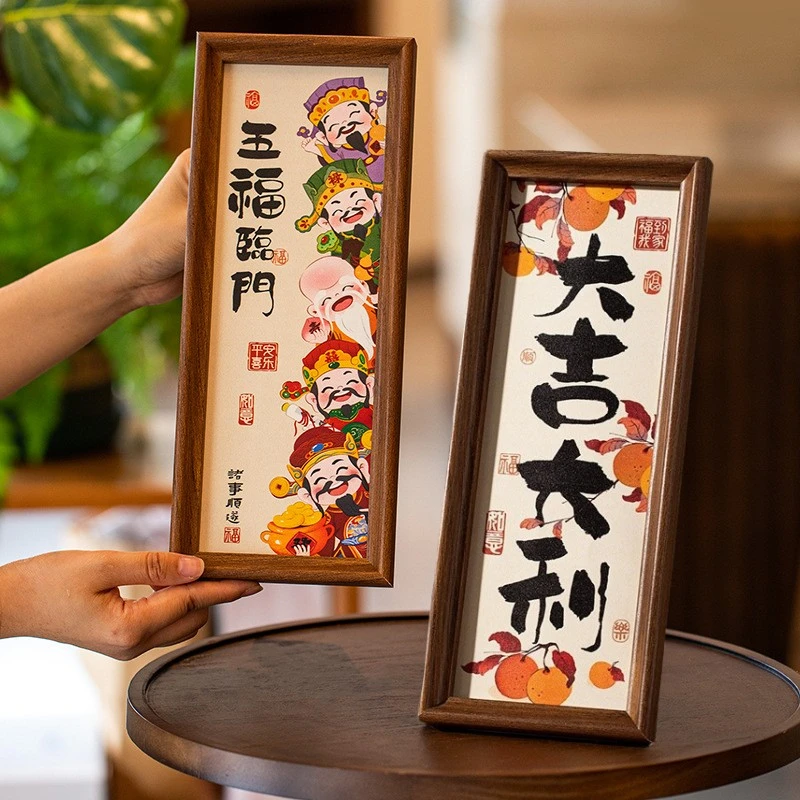 福
五福臨門
福
安乐
平喜
如意
諸事順遂
福
到家
福我
福
大吉大利
順
福
如意
樂